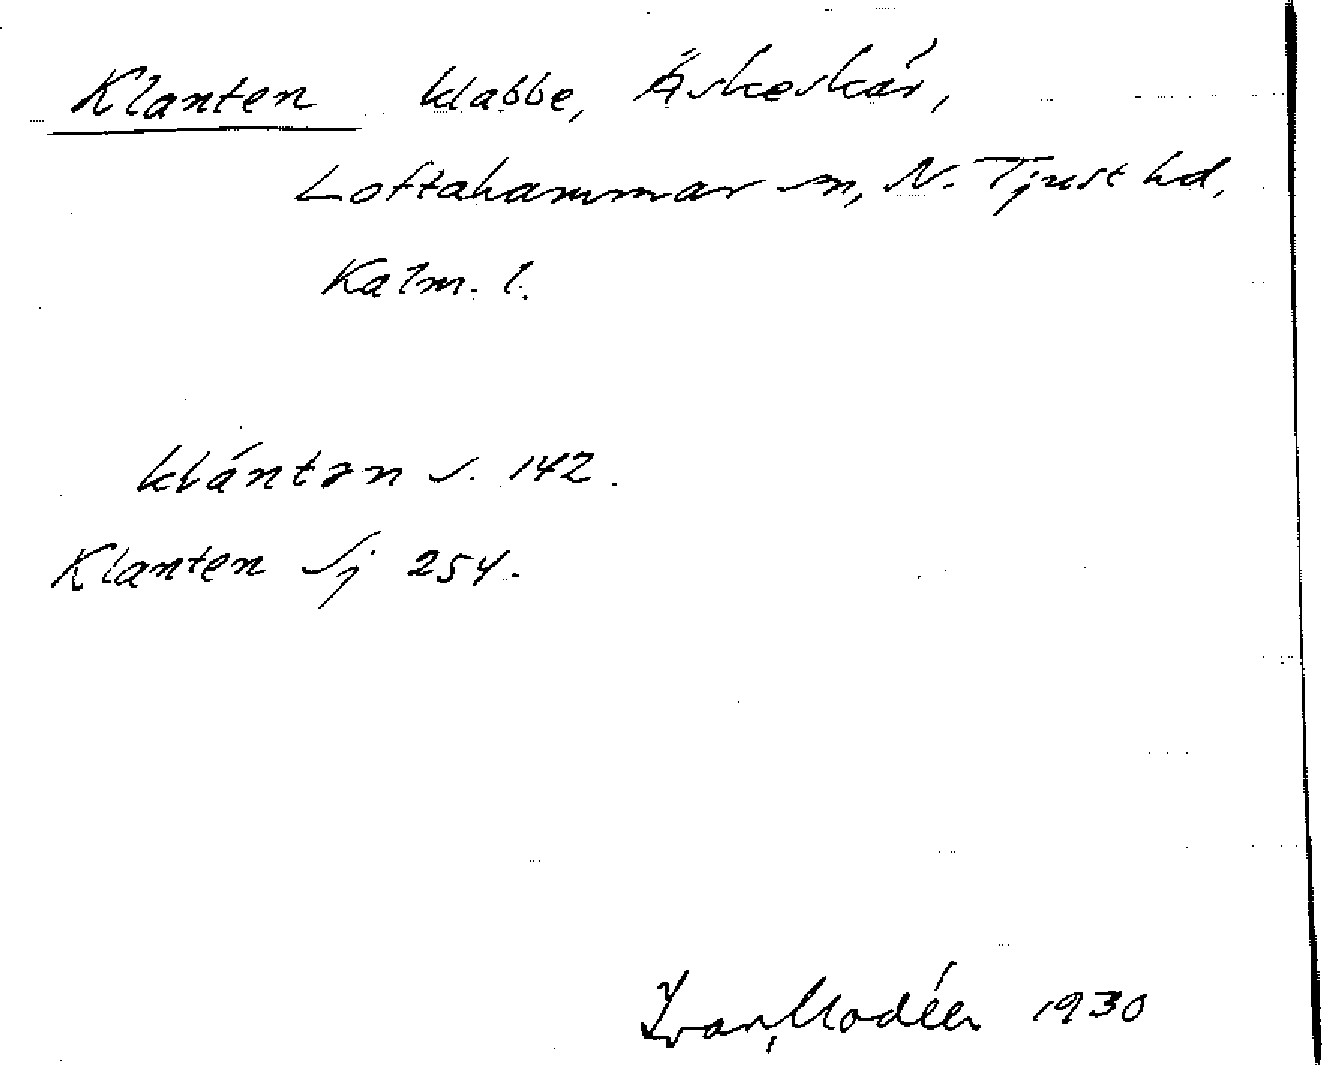 Klanten klabbe, Äskeskär,
Loftahammar sn, N. Tjust hd,
Kalm. l.
klántən s. 142.
Klanten Sj 254.
Ivar Modéer 1930